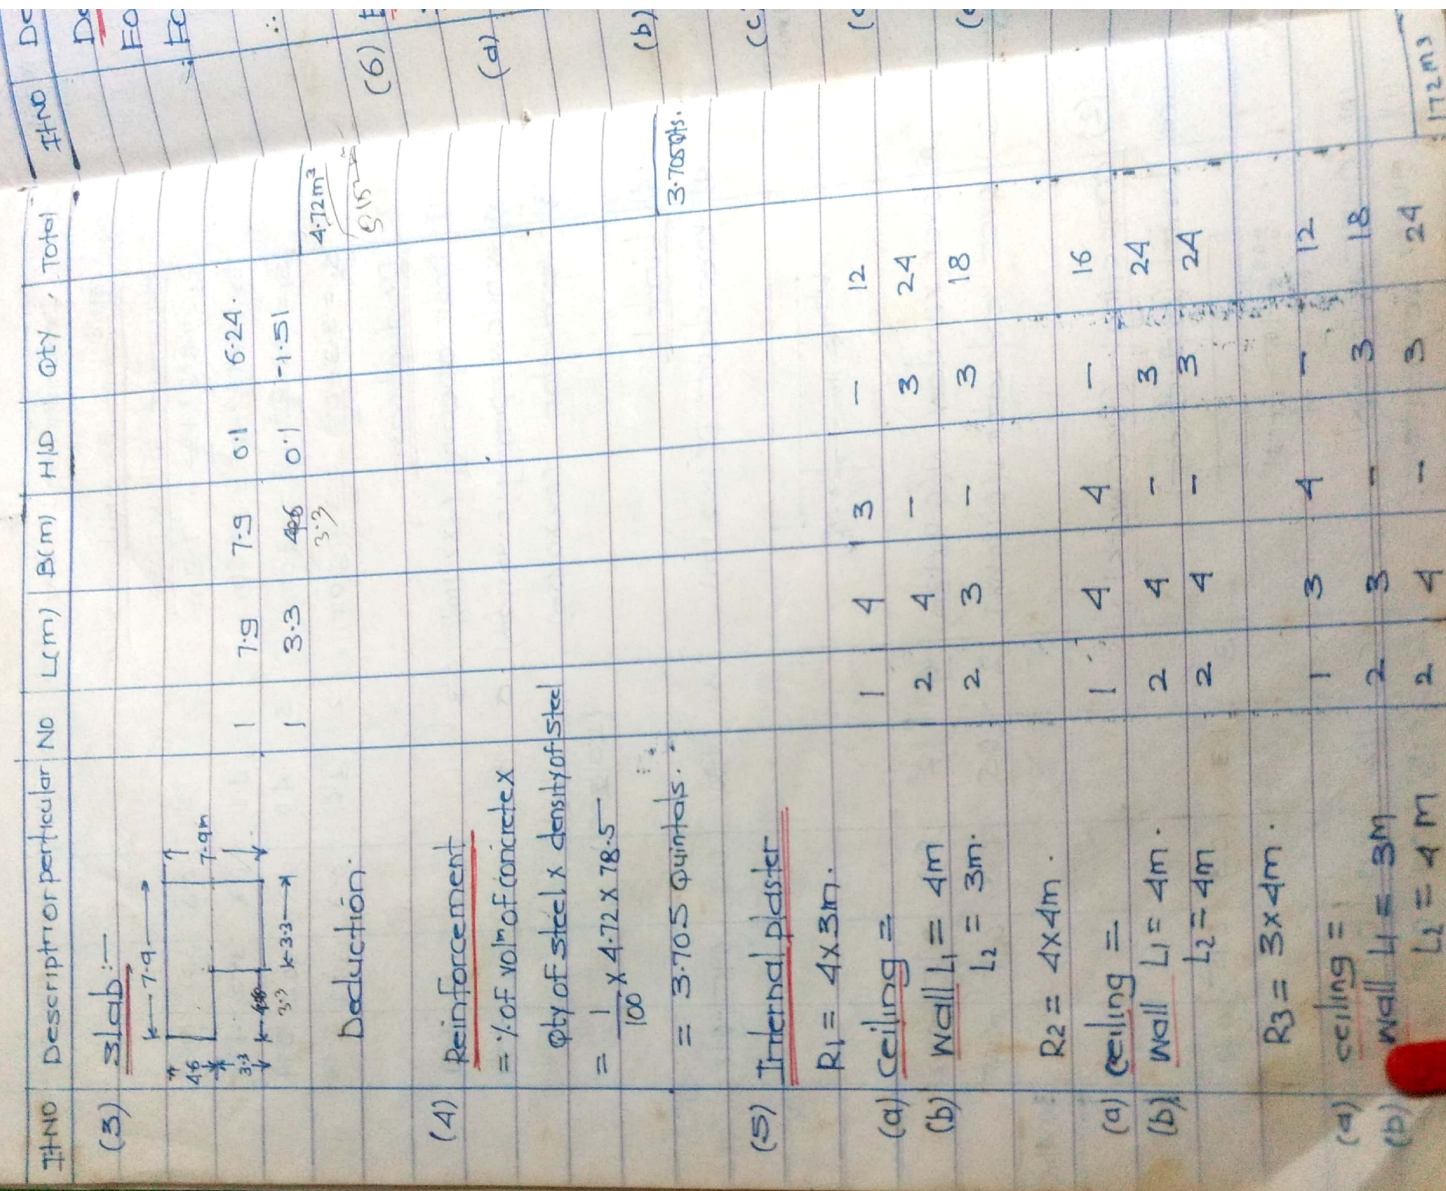 It NO Description or perticular NO L(m) B(m) H/D Qty. Total
(3) Slab:-
7.9
4.6
7.9m
3.3
3.3
3.3
1 7.9 7.9 0.1 6.24.
1 3.3 0.1 -1.51
3.3
4.72m³
Deduction.
(4) Reinforcement
= % of volm of concrete x
Qty of steel x density of steel
= 1/100 x 4.72 x 78.5
= 3.705 Quintals.
3.705 Qts.
(5) Internal plaster
R1 = 4x3m.
(a) ceiling = 1 4 3 - 12
(b) wall L1 = 4m 2 4 - 3 24
L2 = 3m. 2 3 - 3 18
R2 = 4x4m.
(a) ceiling = 1 4 4 - 16
(b) wall L1 = 4m. 2 4 - 3 24
L2 = 4m 2 4 - 3 24
R3 = 3x4m.
(a) ceiling = 1 3 4 - 12
(b) wall L1 = 3m 2 3 - 3 18
L2 = 4m 2 4 - 3 24
172m3
It NO De
(6)
(a)
(b)
(c)